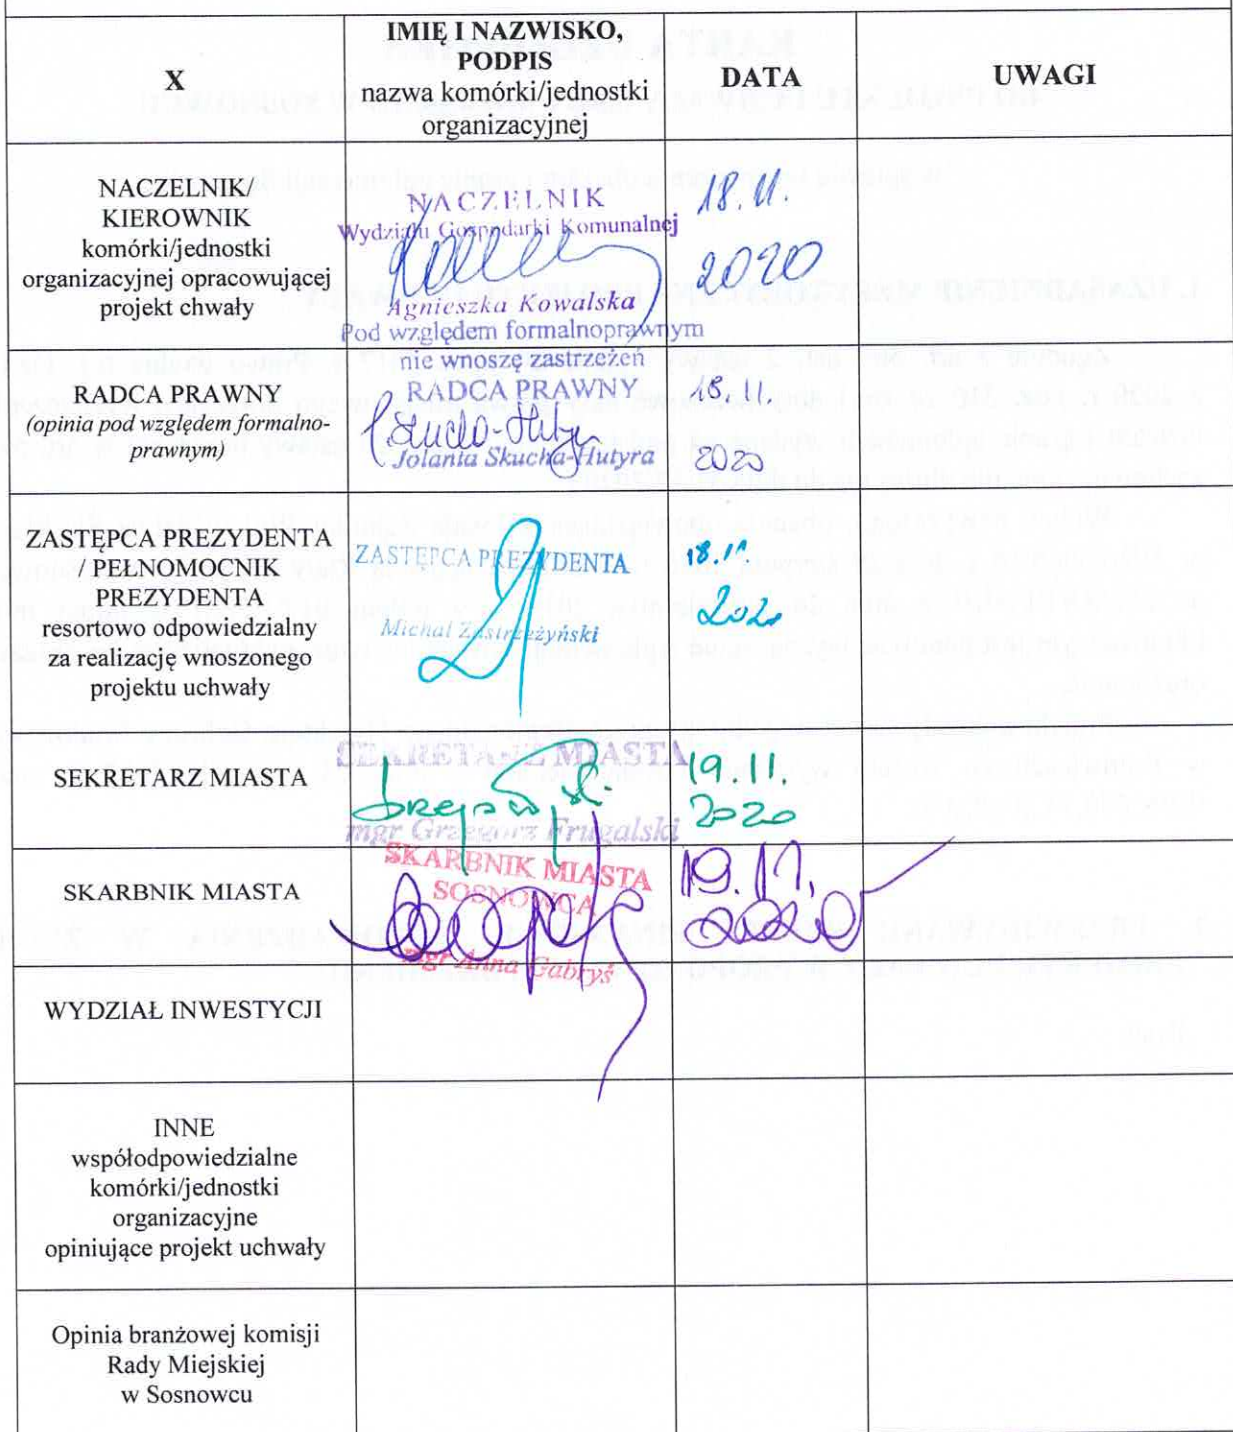 X
IMIĘ I NAZWISKO,
PODPIS
nazwa komórki/jednostki
organizacyjnej
DATA
UWAGI
NACZELNIK/
KIEROWNIK
komórki/jednostki
organizacyjnej opracowującej
projekt chwały
NACZELNIK
Wydziału Gospodarki Komunalnej
Agnieszka Kowalska
18.11.
2020
RADCA PRAWNY
(opinia pod względem formalno-
prawnym)
Pod względem formalnoprawnym
nie wnoszę zastrzeżeń
RADCA PRAWNY
Jolanta Skucha-Hutyra
18.11.
2020
ZASTĘPCA PREZYDENTA
/ PEŁNOMOCNIK
PREZYDENTA
resortowo odpowiedzialny
za realizację wnoszonego
projektu uchwały
ZASTĘPCA PREZYDENTA
Michał Zastrzeżyński
18.11.
2020
SEKRETARZ MIASTA
SEKRETARZ MIASTA
mgr Grzegorz Frugalski
19.11.
2020
SKARBNIK MIASTA
SKARBNIK MIASTA
SOSNOWCA
mgr Anna Gabryś
19.11.
2020
WYDZIAŁ INWESTYCJI
INNE
współodpowiedzialne
komórki/jednostki
organizacyjne
opiniujące projekt uchwały
Opinia branżowej komisji
Rady Miejskiej
w Sosnowcu